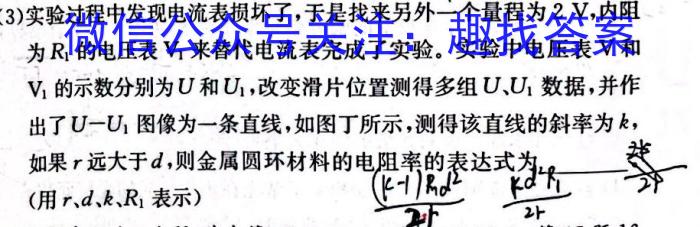 (3)实验过程中发现电流表损坏了,于是找来另外一个量程为2 V,内阻
为R₁的电压表V₁来替代电流表完成了实验。实验中电压表V和
微信公众号关注:趣找答案
V₁的示数分别为U和U₁,改变滑片位置测得多组U、U₁数据,并作
出了U—U₁图像为一条直线,如图丁所示,测得该直线的斜率为k,
如果r远大于d,则金属圆环材料的电阻率的表达式为
(k-1)R₁d²/2r kd²R₁/2r
(用r、d、k、R₁表示)